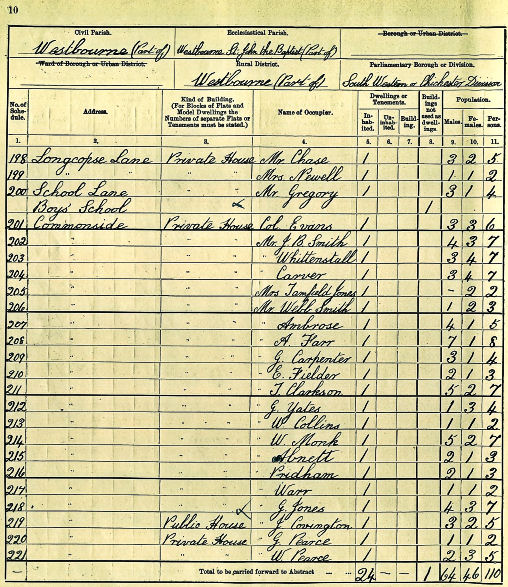 10
Civil Parish. Ecclesiastical Parish. Borough or Urban District.
Westbourne (Part of) Westbourne St. John the Baptist (Part of)
Ward of Borough or Urban District. Rural District. Parliamentary Borough or Division.
Westbourne (Part of) South Western or Chichester Division
No. of Schedule. Address. Kind of Building. (For Blocks of Flats and Model Dwellings the Numbers of separate Flats or Tenements must be stated.) Name of Occupier. Dwellings or Tenements. Inhabited. Uninhabited. Building. Buildings not used as dwellings. Population. Males. Females. Persons.
1. 2. 3. 4. 5. 6. 7. 8. 9. 10. 11.
198 Longcopse Lane Private House Mr Chase 1 3 2 5
199 " " Mrs Newell 1 1 1 2
200 School Lane " Mr Gregory 1 3 1 4
Boys' School 1
201 Commonside Private House Col. Evans 1 3 3 6
202 " " Mr J. B. Smith 1 4 3 7
203 " " " Whittenstall 1 3 4 7
204 " " Carver 1 3 4 7
205 " " Mrs Jones 1 - 2 2
206 " " Mr Webb Smith 1 1 2 3
207 " " Ambrose 1 4 1 5
208 " " A. Farr 1 7 1 8
209 " " G. Carpenter 1 3 1 4
210 " " E. Fielder 1 2 1 3
211 " " T. Clarkson 1 5 2 7
212 " " G. Yates 1 1 3 4
213 " " W. Collins 1 1 1 2
214 " " W. Monk 1 5 2 7
215 " " Abnett 1 2 1 3
216 " " Pridham 1 2 1 3
217 " " Warr 1 1 1 2
218 " " " G. Jones 1 4 3 7
219 " Public House " Covington 1 3 2 5
220 " Private House " G. Pearce 1 1 1 2
221 " " " W. Pearce 1 2 3 5
Total to be carried forward to Abstract 24 - - 1 64 46 110